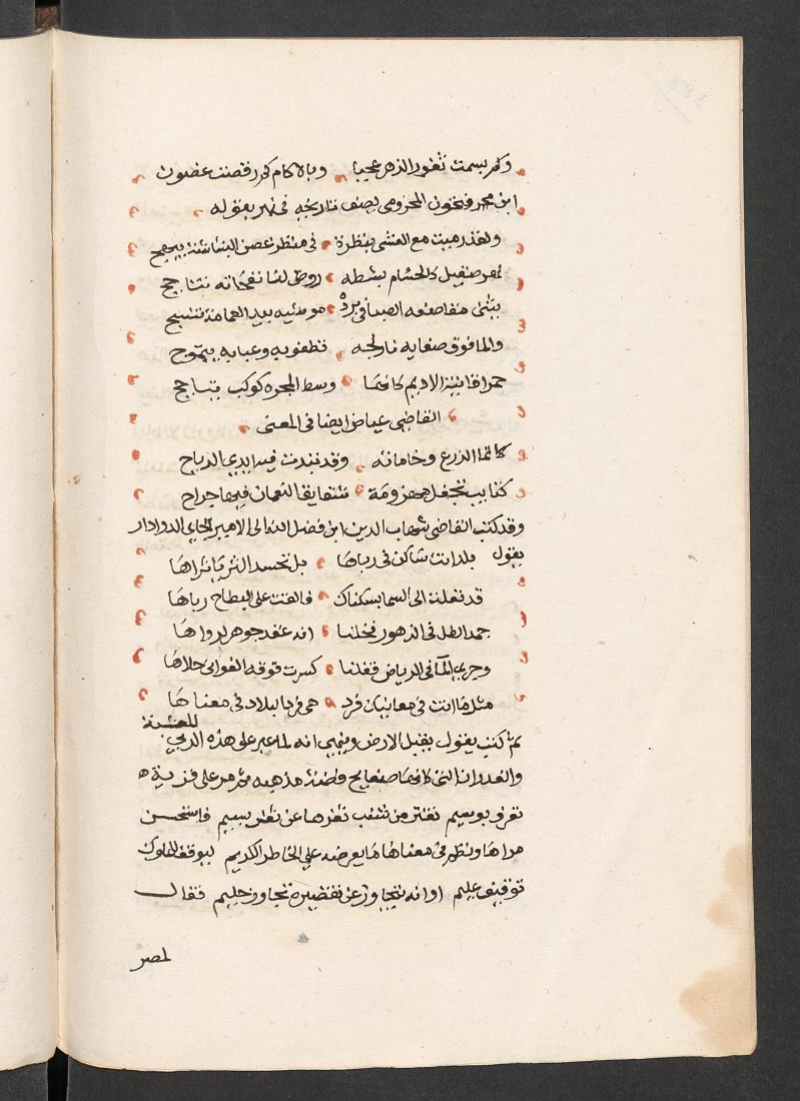 وكم بسمت ثغور الزهر عجبا وبالاكام كم رقصت غصون
ابن محرز فخزون المخزومى يصف نارنجه فى نهر بقوله
ولقد رميت مع العشى بنظرة فى منظر غصن البشاشة يبهج
نهر صقيل كالحسام بشطه روض لنا نفحاته تتأجج
تثنى معاطفه الصبا فى بردة موشيه بيد الغمامة تنسج
والما فوق صفايه نارنجه تطفو به وعبابه يتموج
حمرا قانية الاديم كانها وسط المجره كوكب يتاجج
القاضى عياض ايضا فى المعنى
كانما الزرع وخاماته وقد تبدت فيه ايدي الرياح
كتايب تجفل مهزومة شقايق النعمان فيها جراح
وقد كتب القاضى شهاب الدين ابن فضل الله الى الامير الجاي الدوادار
يقول بلد انت ساكن فى رباها بل تحسد الثريا ثراها
قد تعلت الى السما بسكناك فالقت على البطاح رباها
جمد الطل فى الزهور فخلنا انه عقد جوهر لرواها
وجرى الما فى الرياض فقلنا كسرت فوقه الغوانى حلاها
مثلها انت فى معانيك فرد هى فرد البلاد فى معناها
ثم كتب يقول يقبل الارض وينهي انه لما عبر على هذه الربي للعشبة
والغدران التى كانها صفايح فضة مذهبه ثم مر على قرية
تعرف بوسيم تفتر من شنب ثغرها عن ثغر بسيم فاستحسن
مراها ونظم فى معناها ما يعرضه علي الخاطر الكريم ليوقف المملوك
توقيف عليم او انه يتجاوز عن تقصيره تجاوز حليم فقال
لمصر